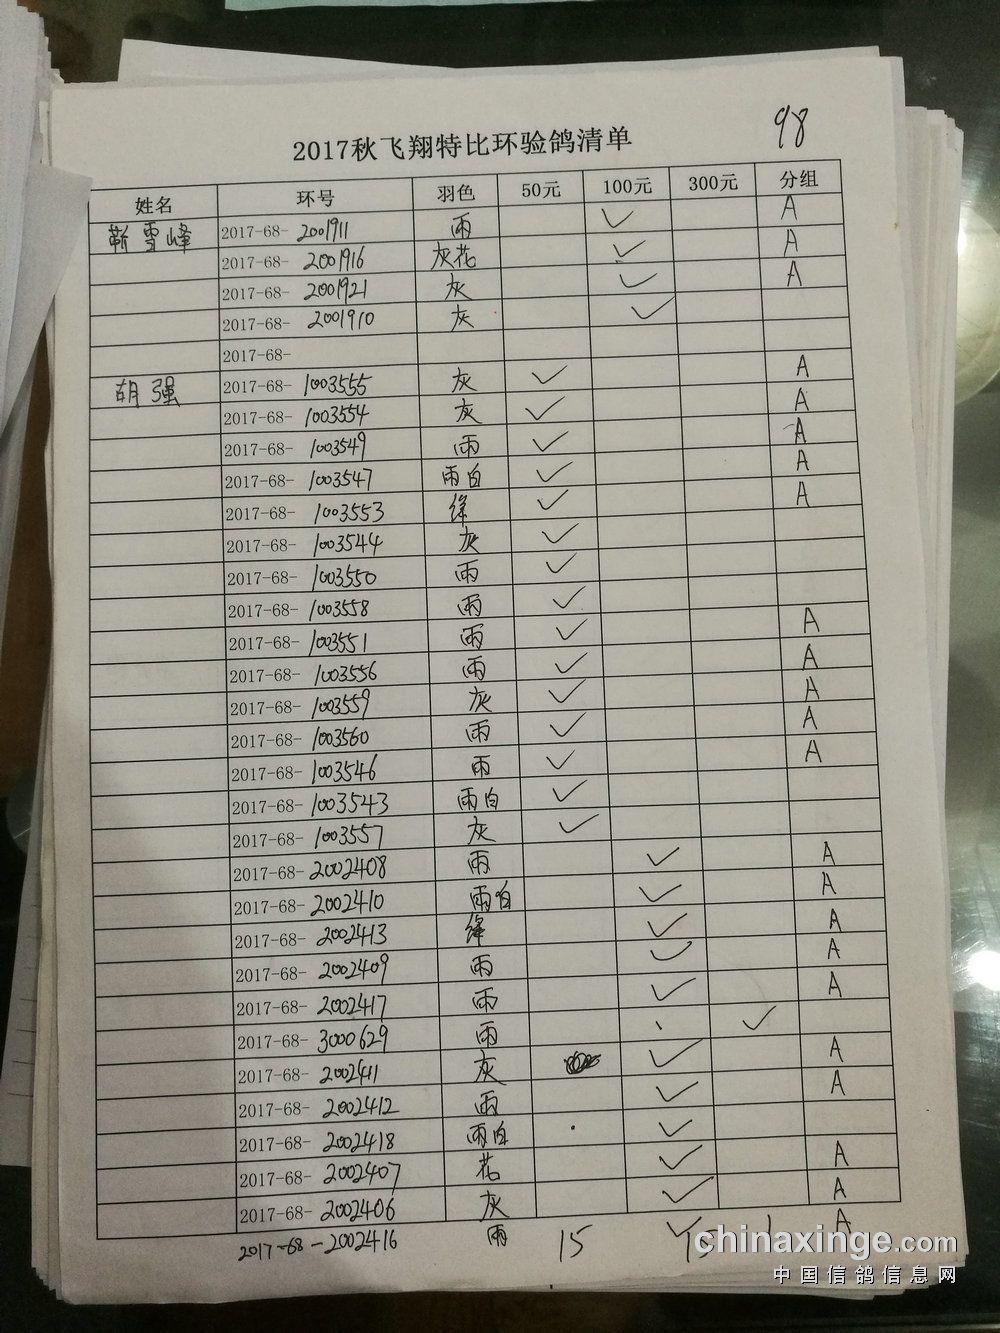 98
2017秋飞翔特比环验鸽清单
姓名 环号 羽色 50元 100元 300元 分组
靳雪峰 2017-68- 2001911 雨 ✓ A
2017-68- 2001916 灰花 ✓ A
2017-68- 2001921 灰 ✓ A
2017-68- 2001910 灰 ✓
2017-68-
胡强 2017-68- 1003555 灰 ✓ A
2017-68- 1003554 灰 ✓ A
2017-68- 1003549 雨 ✓ A
2017-68- 1003547 雨白 ✓ A
2017-68- 1003553 绛 ✓ A
2017-68- 1003544 灰 ✓
2017-68- 1003550 雨 ✓
2017-68- 1003558 雨 ✓
2017-68- 1003551 雨 ✓ A
2017-68- 1003556 雨 ✓ A
2017-68- 1003559 灰 ✓ A
2017-68- 1003560 雨 ✓ A
2017-68- 1003546 雨 ✓ A
2017-68- 1003543 雨白 ✓
2017-68- 1003557 灰 ✓
2017-68- 2002408 雨 ✓ A
2017-68- 2002410 雨白 ✓ A
2017-68- 2002413 绛 ✓ A
2017-68- 2002409 雨 ✓ A
2017-68- 2002417 雨 ✓ A
2017-68- 3000629 雨 ✓
2017-68- 2002411 灰 ✓ A
2017-68- 2002412 雨 ✓ A
2017-68- 2002418 雨白 ✓
2017-68- 2002407 花 ✓ A
2017-68- 2002406 灰 ✓ A
2017-68-2002416 雨 ✓ A
15 15 1
chinaxinge.com
中国信鸽信息网